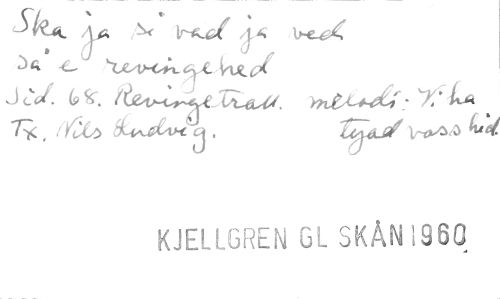 Ska ja si vad ja ved
så e revingehed
Sid. 68. Revingetrall. melodi: Vi ha
Tx. Nils Ludvig. tyad voss hid.
KJELLGREN GL SKÅN 1960